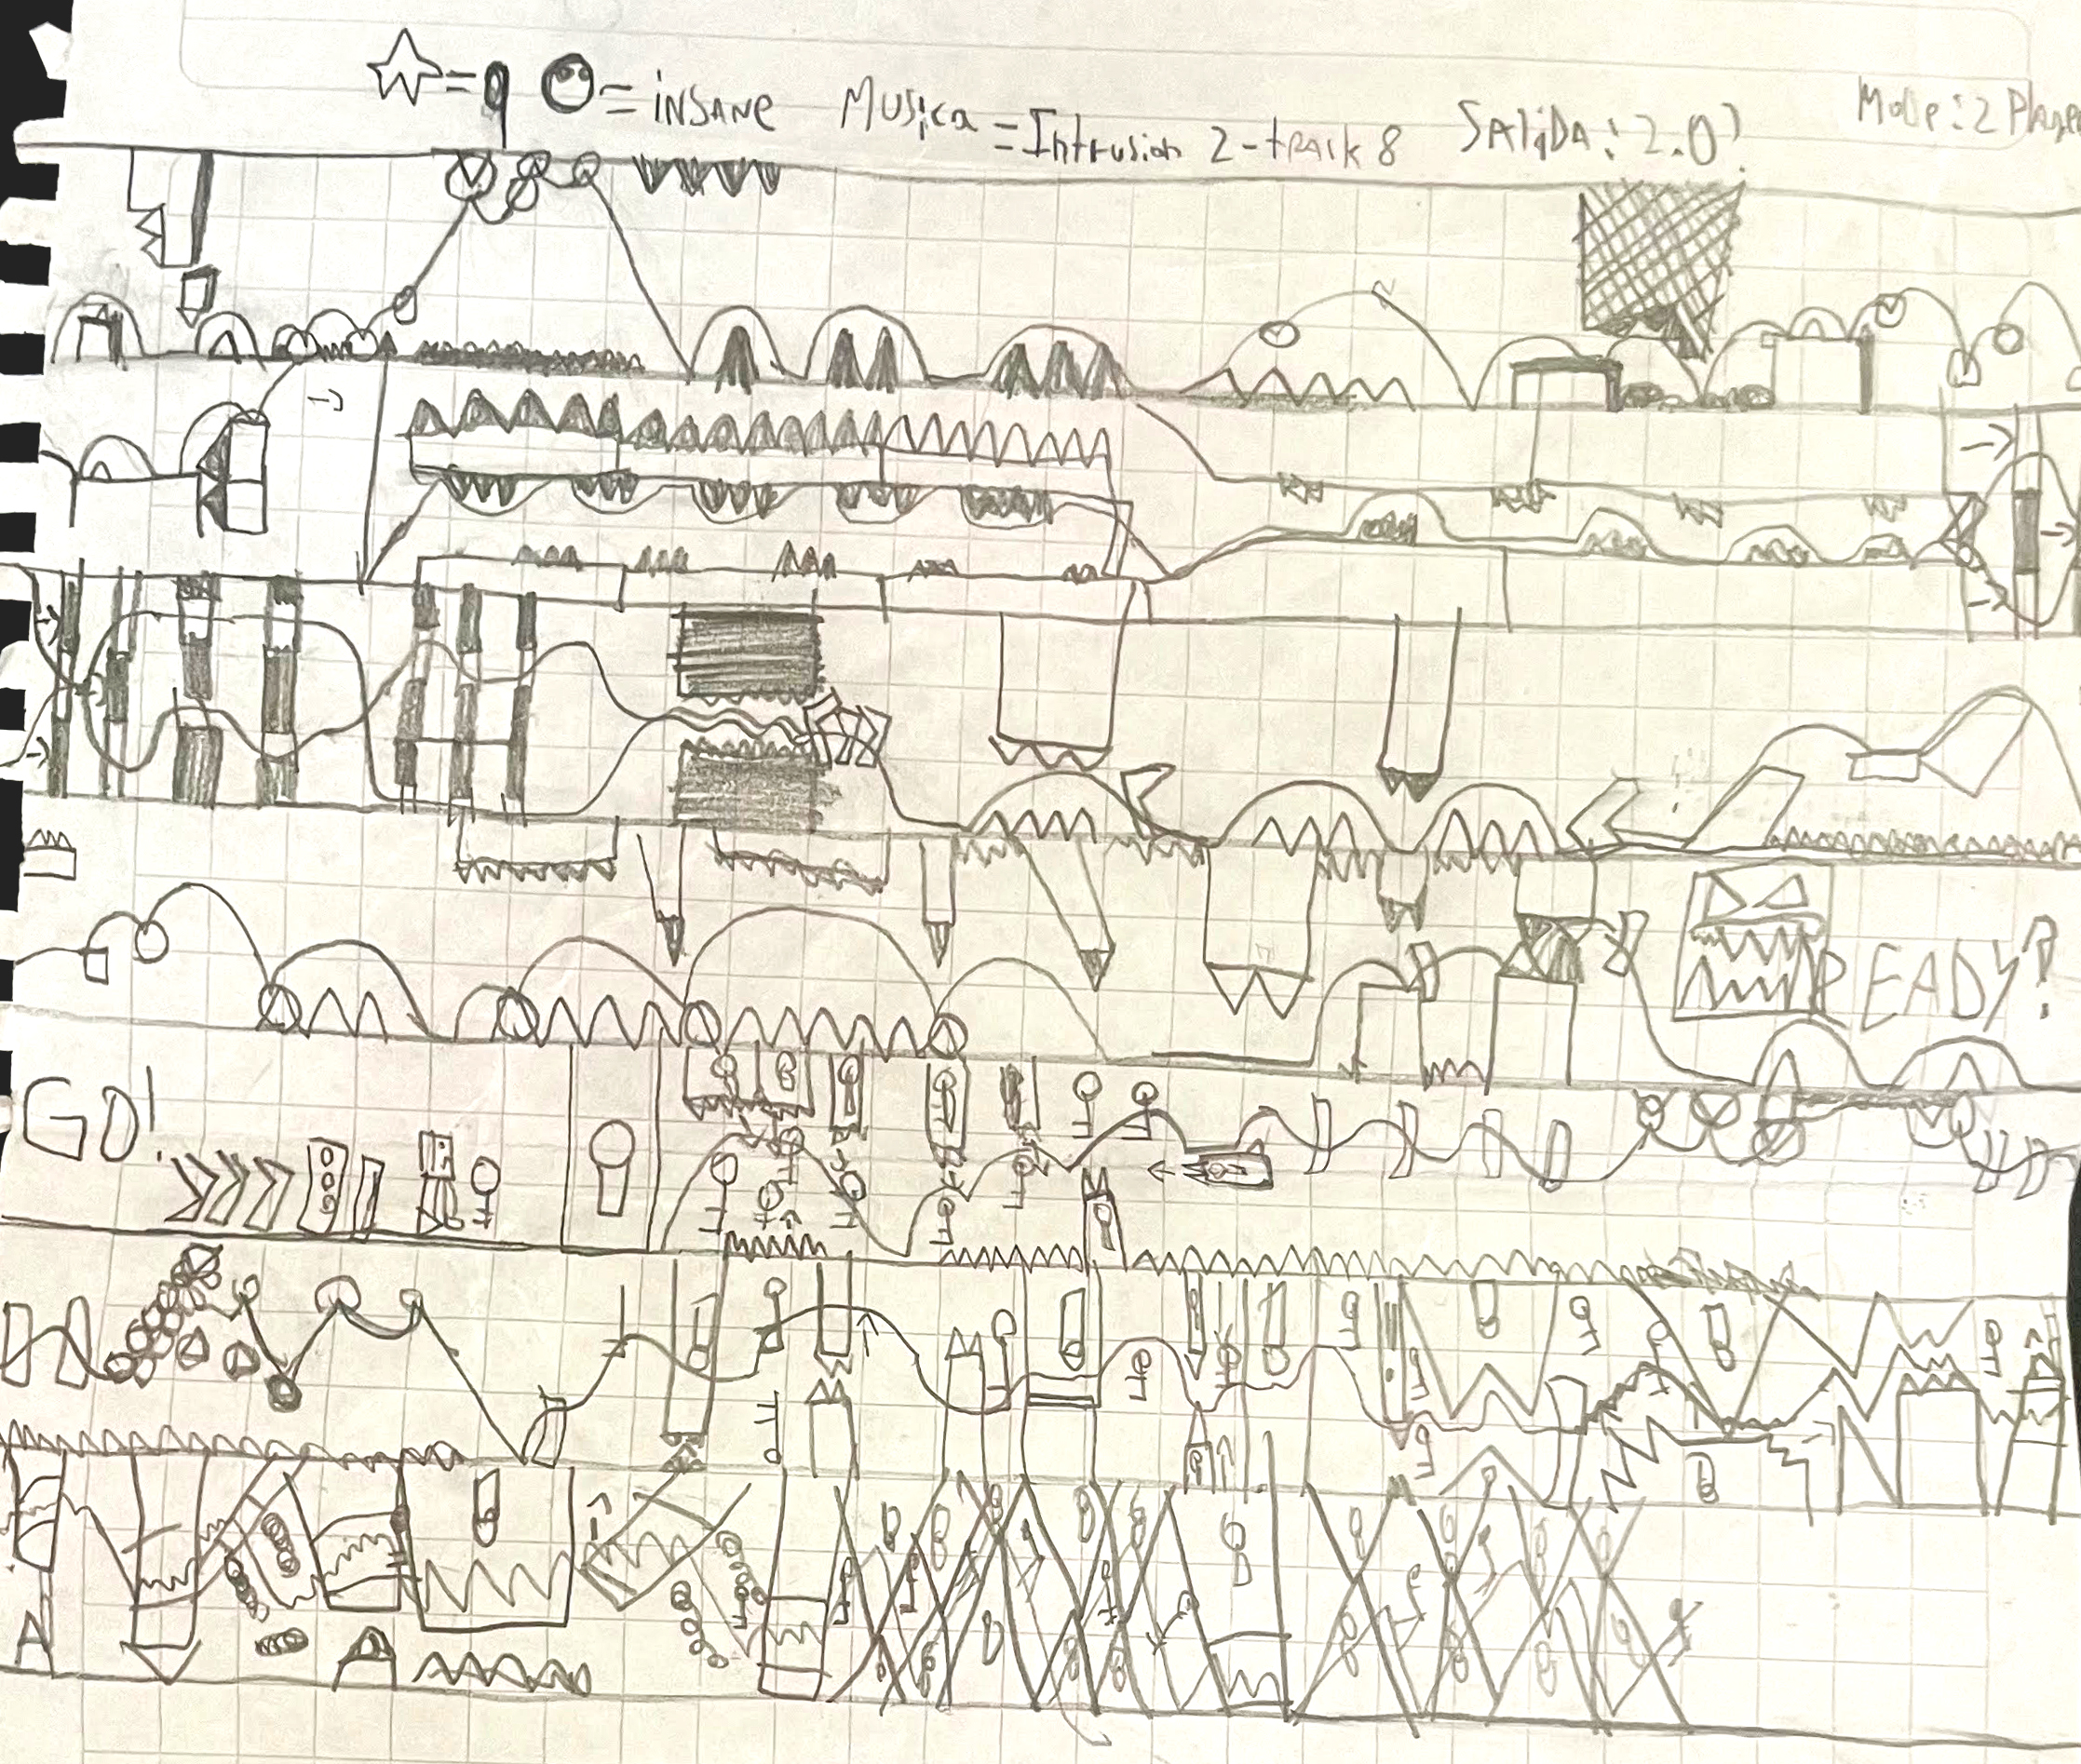 = 9 = INSANE Musica = Intrusion 2 - track 8 SALIDA: 2.0? Mode: 2 Player
READY?
GO!